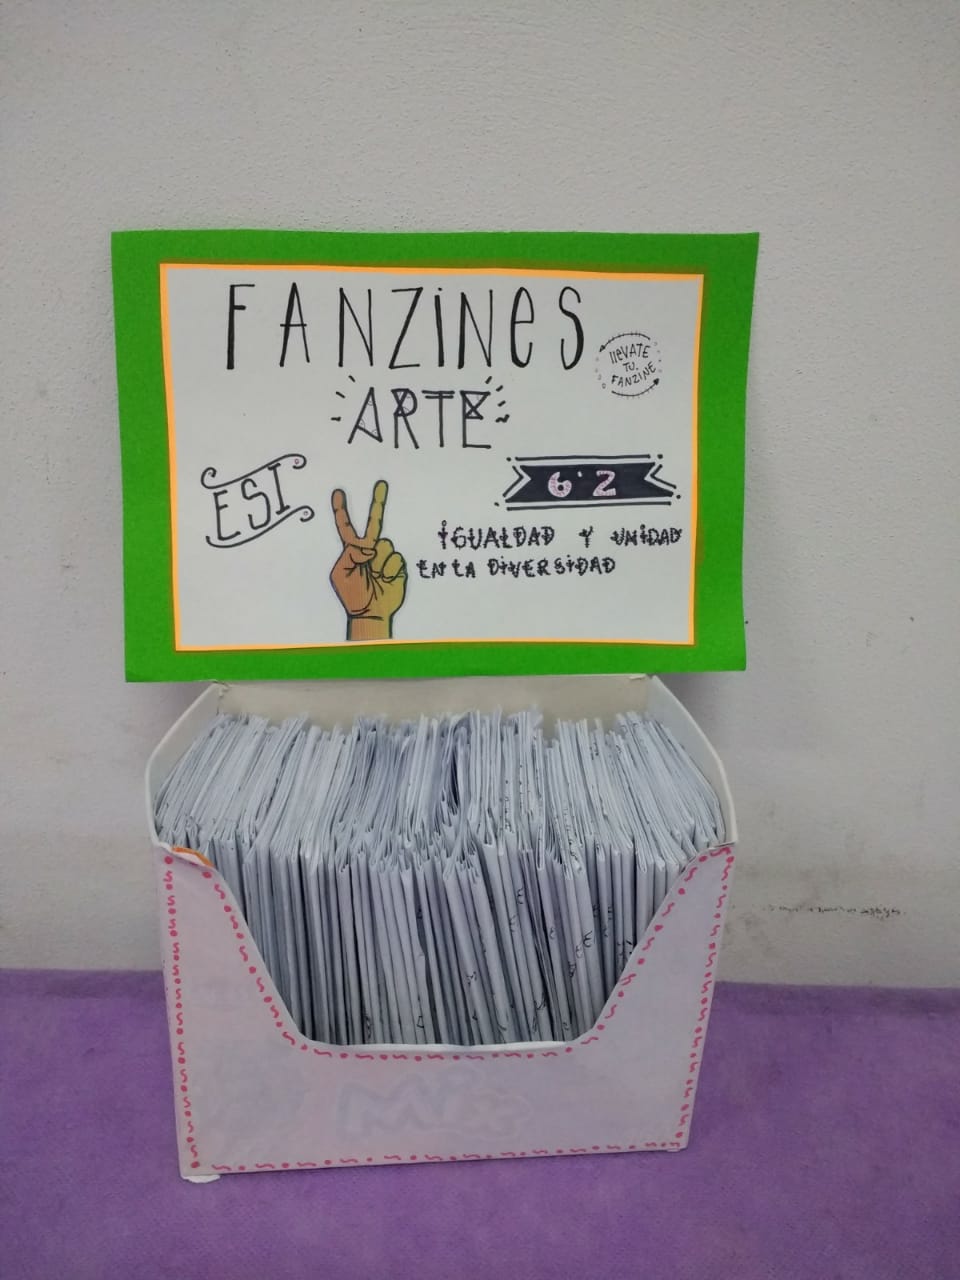 FANZINES
llEVATE
TU.
FANZINE
ARTE
ESI
6°2
IGUALDAD Y UNIDAD
EN LA DIVERSIDAD